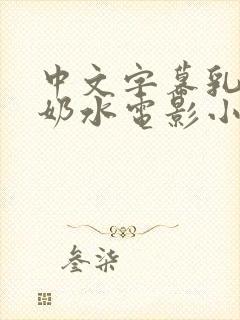 中文字幕乳
奶水电影小
叁柒